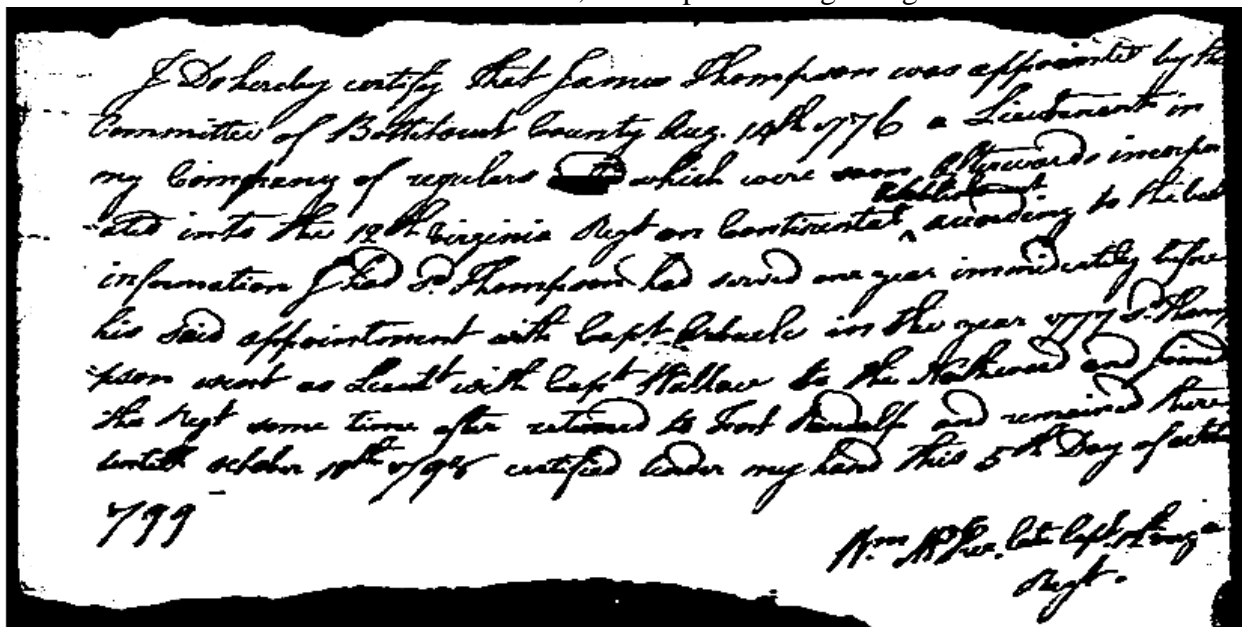 I Do hereby certify that James Thompson was appointed by the
Committee of Bottitourt County Aug. 14th 1776 a Lieutenant in
my Company of regulars which were soon afterwards incorpor
Establishment
ated into the 12th Virginia Regt on Continental ^ according to the best
information I had Sd. Thompson had served one year immidiately before
his said appointment with Capt. Arbuckle in the year 1777 Sd. Thomp
pson went as Lieutt with Capt Wallace to the Nothward and Joined
the Regt some time after returned to Fort Randolph and remained there
untill october certified under my hand this 5th Day of october
1799
Wm McKee late Capt. 12th Virga
Regt.